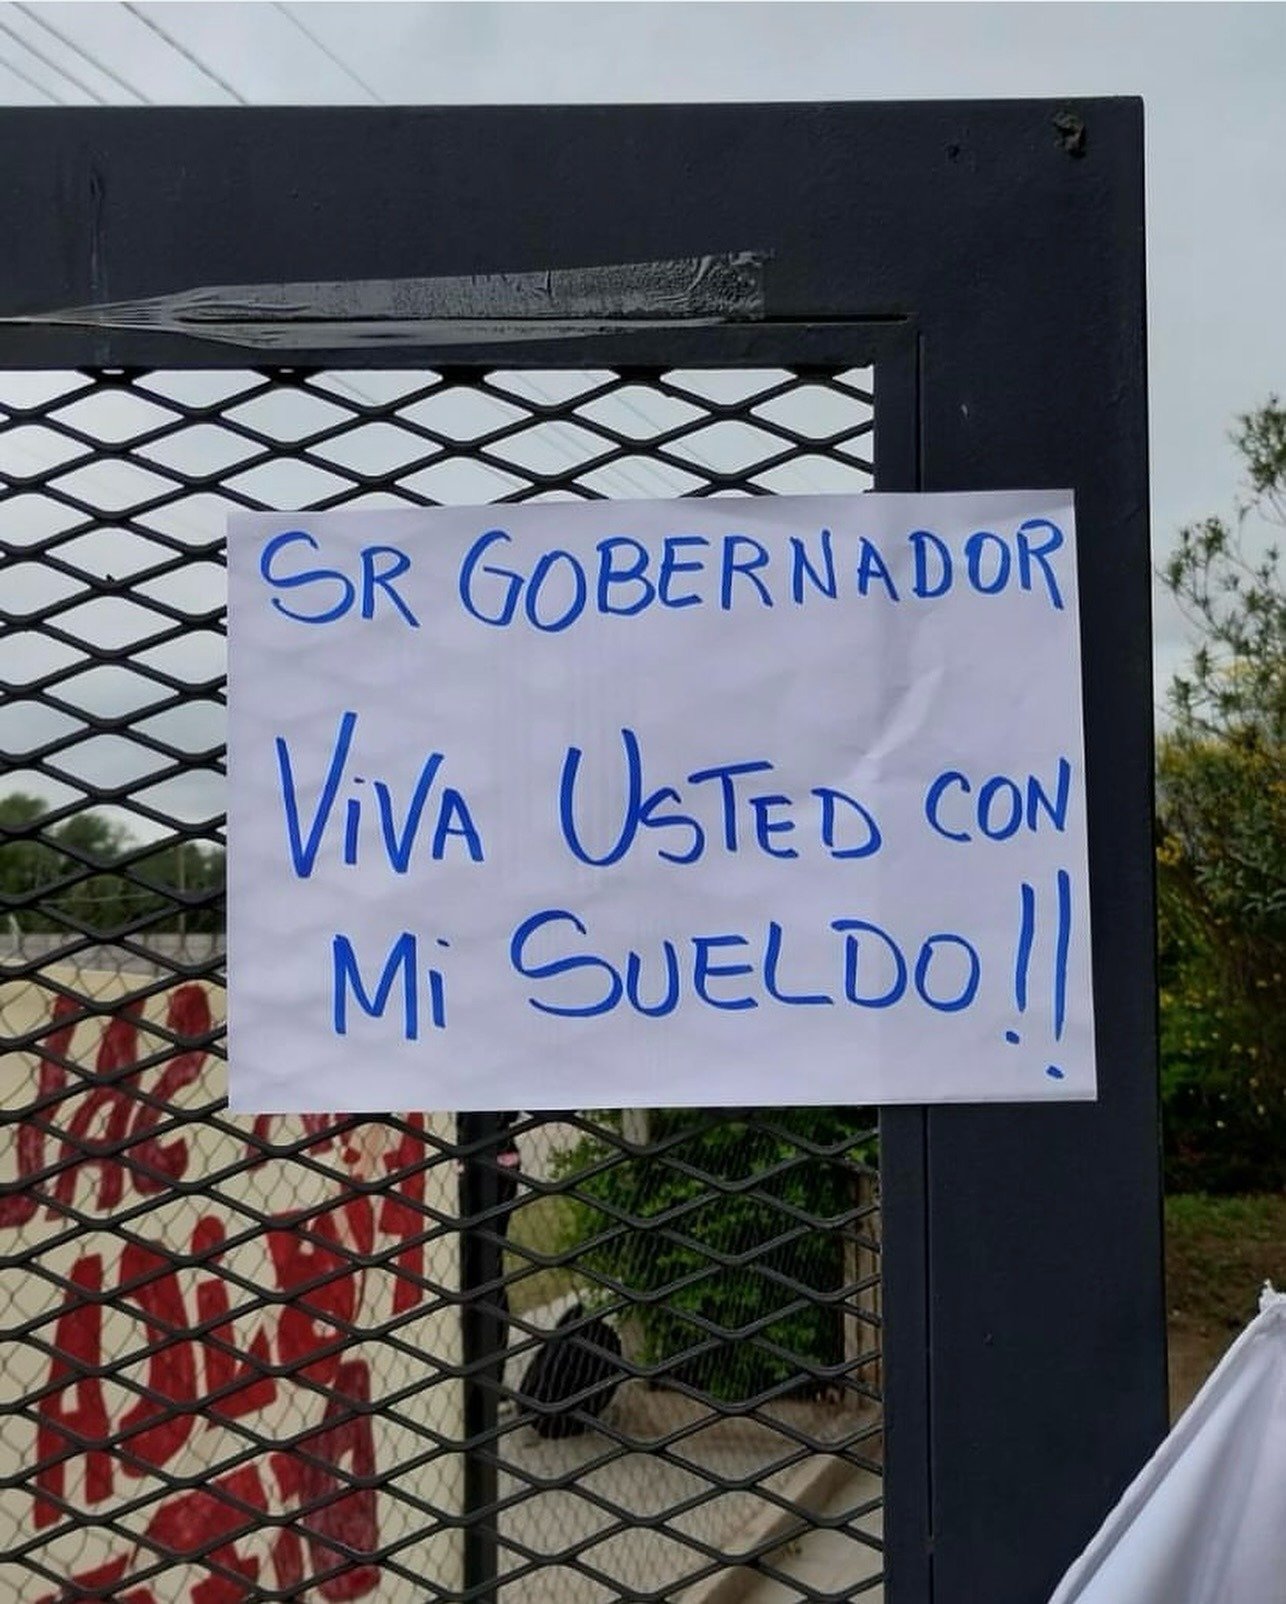 SR GOBERNADOR
ViVA USTED CON
Mi SUELDO!!